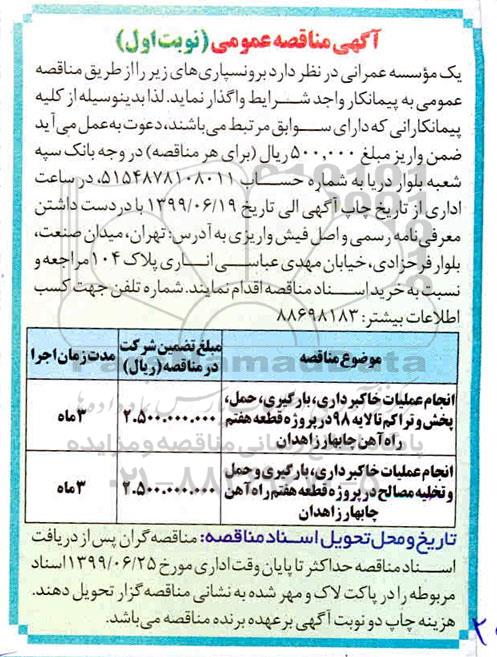 آگهی مناقصه عمومی (نوبت اول)
یک مؤسسه عمرانی در نظر دارد برونسپاری‌های زیر را از طریق مناقصه
عمومی به پیمانکار واجد شرایط واگذار نماید. لذا بدینوسیله از کلیه
پیمانکارانی که دارای سوابق مرتبط می‌باشند، دعوت به عمل می‌آید
ضمن واریز مبلغ ۵۰۰,۰۰۰ ریال (برای هر مناقصه) در وجه بانک سپه
شعبه بلوار دریا به شماره حساب ۵۱۵۴۸۷۸۱۰۸۰۱۱، در ساعت
اداری از تاریخ چاپ آگهی الی تاریخ ۱۳۹۹/۰۶/۱۹ با در دست داشتن
معرفی‌نامه رسمی و اصل فیش واریزی به آدرس: تهران، میدان صنعت،
بلوار فرحزادی، خیابان مهدی عباسی اناری پلاک ۱۰۴ مراجعه و
نسبت به خرید اسناد مناقصه اقدام نمایند. شماره تلفن جهت کسب
اطلاعات بیشتر: ۸۸۶۹۸۱۸۳
موضوع مناقصه
مبلغ تضمین شرکت
در مناقصه (ریال)
مدت زمان اجرا
انجام عملیات خاکبرداری، بارگیری، حمل،
پخش و تراکم تا لایه ۹۸ در پروژه قطعه هفتم
راه آهن چابهار زاهدان
۲.۵۰۰.۰۰۰.۰۰۰
۳ ماه
انجام عملیات خاکبرداری، بارگیری و حمل
و تخلیه مصالح در پروژه قطعه هفتم راه آهن
چابهار زاهدان
۲.۵۰۰.۰۰۰.۰۰۰
۳ ماه
تاریخ و محل تحویل اسناد مناقصه: مناقصه‌گران پس از دریافت
اسناد مناقصه حداکثر تا پایان وقت اداری مورخ ۱۳۹۹/۰۶/۲۵ اسناد
مربوطه را در پاکت لاک و مهر شده به نشانی مناقصه‌گزار تحویل دهند.
هزینه چاپ دو نوبت آگهی بر عهده برنده مناقصه می‌باشد.